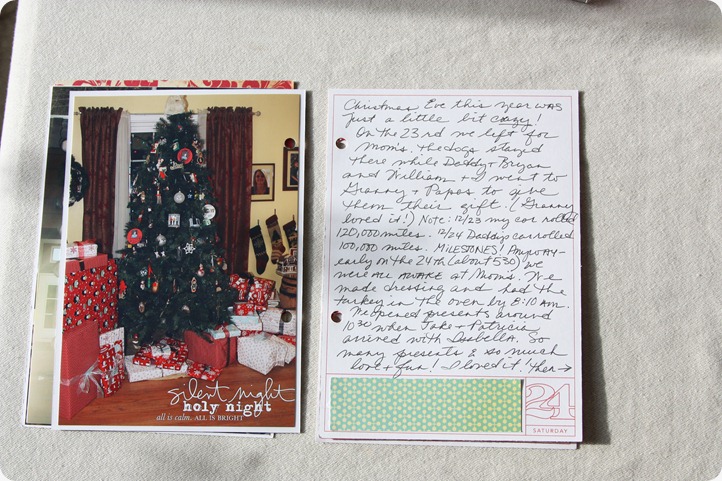 silent night
holy night
all is calm. ALL IS BRIGHT
Christmas Eve this year was
just a little bit crazy!
On the 23rd we left for
Mom's. The dogs stayed
there while Daddy + Bryan
and William + I went to
Granny + Papas to give
them their gift. (Granny
loved it!) Note: 12/23 my car rolled
120,000 miles. 12/24 Daddys car rolled
100,000 miles. MILESTONES! Anyway-
early on the 24th (about 530) we
were ALL AWAKE at Moms. We
made dressing and had the
turkey in the oven by 8:10 am.
We opened presents around
1030 when Jake + Patricia
arrived with Isabella. So
many presents & so much
love + fun! I loved it! then →
24
SATURDAY